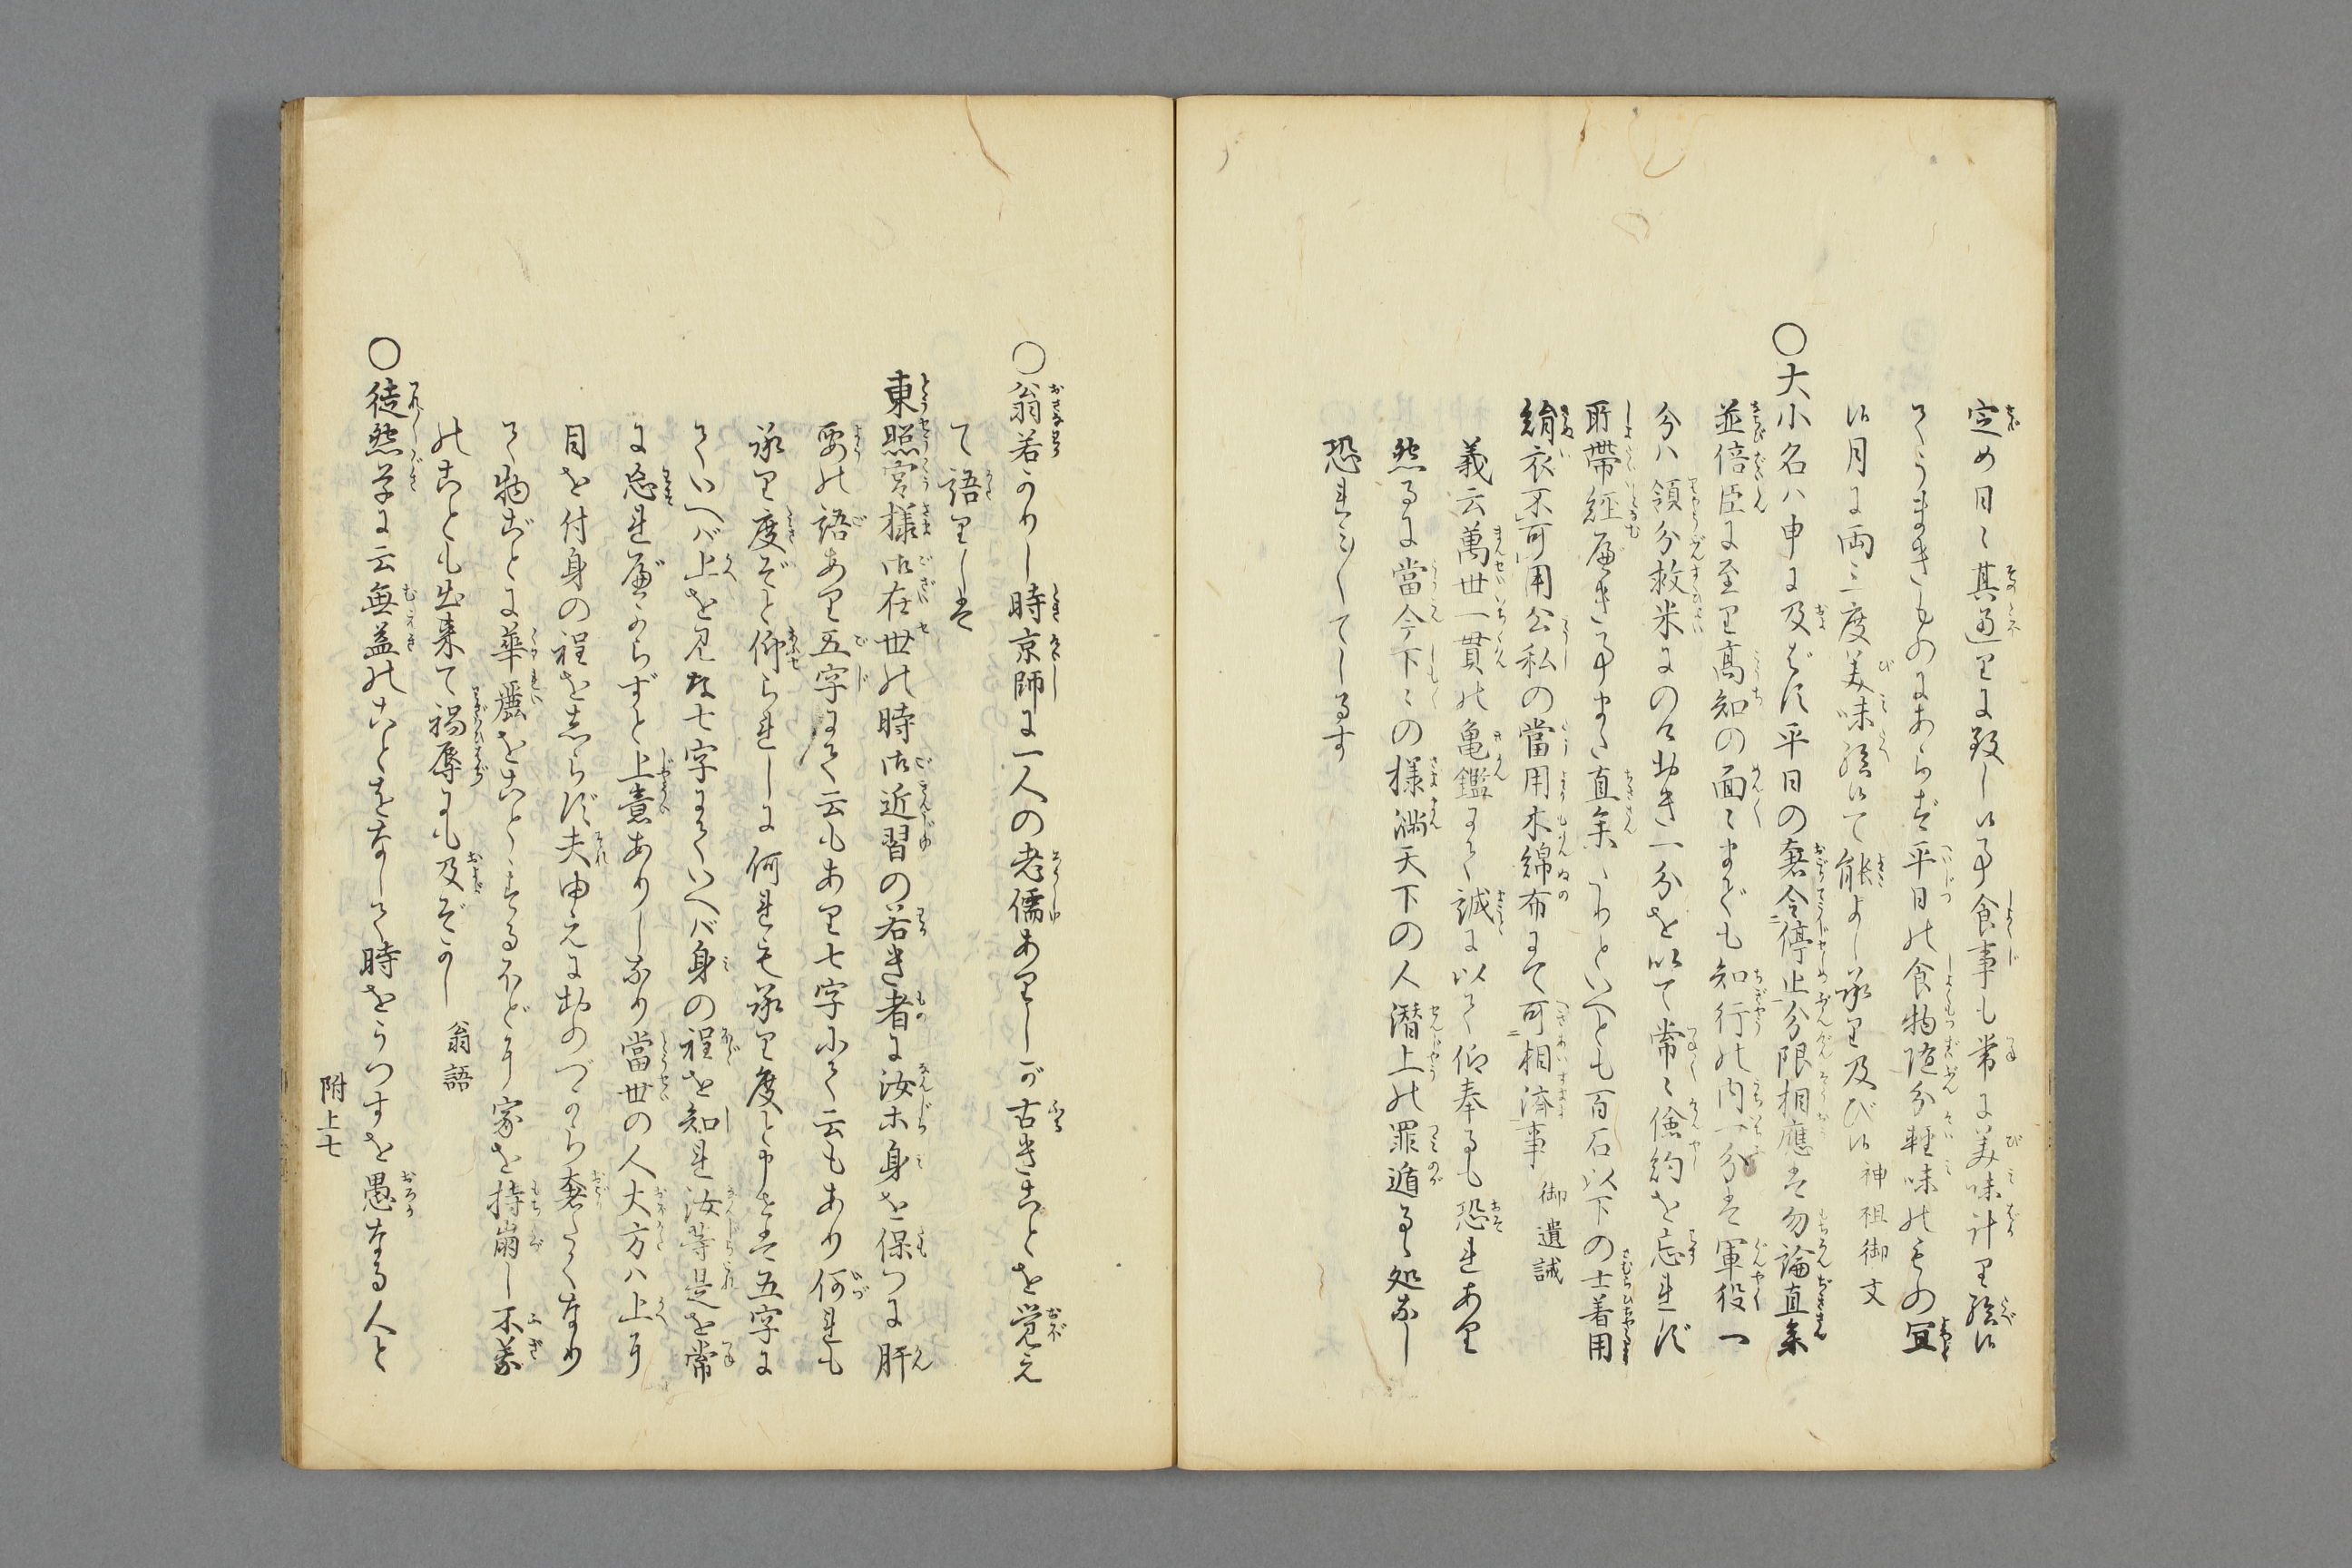 定め日々其通里に致し候事食事も常に美味計里給候
てうまきものにあらず平日の食物随分軽味のもの宜
候月に両三度美味給候て能よし承里及び候 神祖御文
〇大小名ハ申に及ばず平日の奢令停止分限相應は勿論直参
並倍臣に至里高知の面々までも知行の内一分は軍役一
分ハ領分救米にのけ助き一分を以て常々儉約を忘れず
所帶経届き事また直参 たりといへとも百石以下の士着用
絹衣不可用公私の當用木綿布にて可相済事 御遺誡
義云萬世一貫の亀鑑にて誠に以て仰奉るも恐れあり
然るに當今下々の様満天下の人潜上の罪遁る処なし
恐れミてしるす
〇翁若かりし時京師に一人の老儒あ里しが古きことを覚え
て語里しは
東照宮様御在世の時御近習の若き者に汝ホ身を保つに肝
要の語あ里五字にて云もあ里七字にて云もあり何れも
承里度ぞと仰られしに何れも承里度と申せは五字に
ていへバ上を見な七字にていへバ身の程を知れ汝等是を常
に忘れ遍からずと上意ありしなり當世の人大方ハ上耳
目を付身の程を志らず夫由えに助のづから奢たくなり
て物ごとに華麗をことゝするほど耳家を持崩し不義
のことも出来て禍辱にも及ぞかし 翁語
〇徒然草に云無益のことをなして時をうつすを愚なる人と
附上七